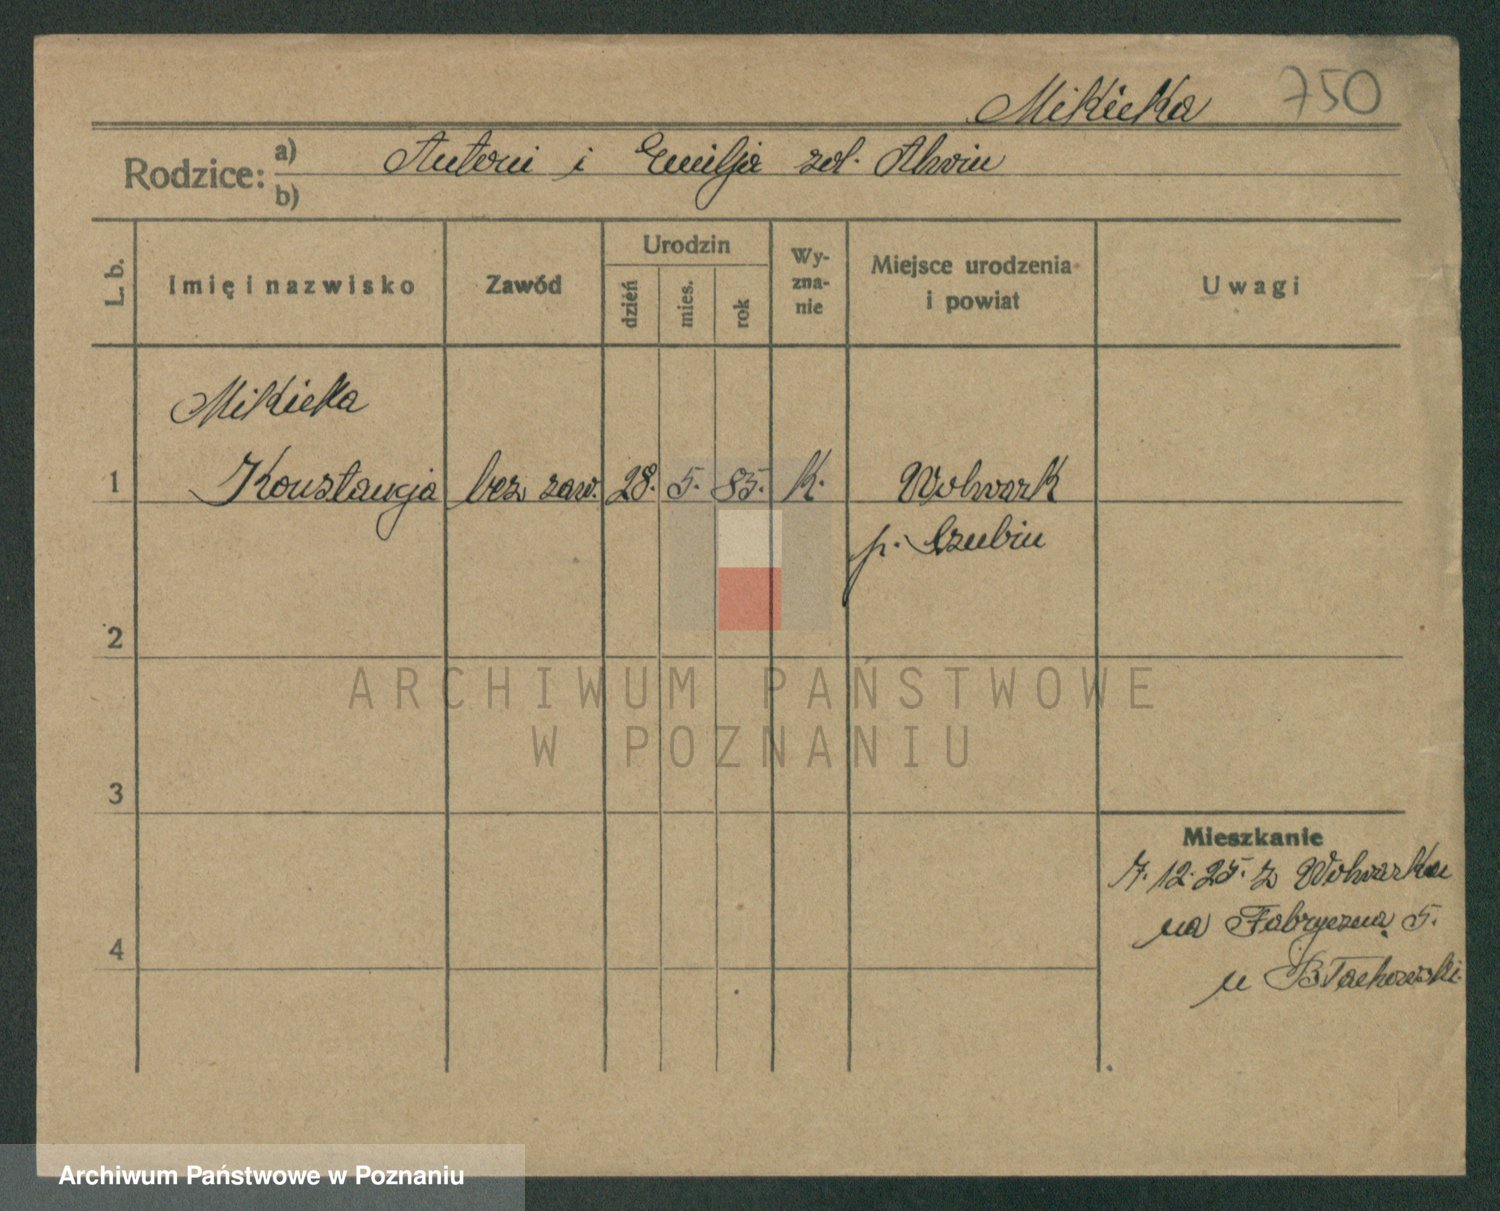 Mikicka 750
Rodzice: a) Antoni i Emilja zd. Alwin
b)
L. b. Imię i nazwisko Zawód Urodzin dzień mies. rok Wyznanie Miejsce urodzenia i powiat Uwagi
Mikicka
1 Konstancja bez zaw. 28. 5. 85. k. Wolwark
p. Szubin
2
ARCHIWUM PAŃSTWOWE
W POZNANIU
3
Mieszkanie
7. 12. 25. z Wolwarku
na Fabryczną 5.
4
u Błachowski
Archiwum Państwowe w Poznaniu